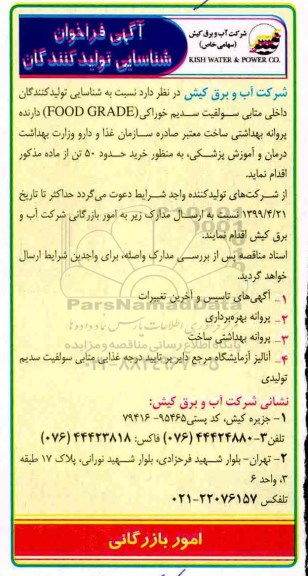 شرکت آب و برق کیش
(سهامی خاص)
KISH WATER & POWER CO.
آگهی فراخوان
شناسایی تولیدکنندگان
شرکت آب و برق کیش در نظر دارد نسبت به شناسایی تولیدکنندگان
داخلی متابی سولفیت سدیم خوراکی (FOOD GRADE) دارنده
پروانه بهداشتی ساخت معتبر صادره سازمان غذا و دارو وزارت بهداشت
درمان و آموزش پزشکی، به منظور خرید حدود ۵۰ تن از ماده مذکور
اقدام نماید.
از شرکت‌های تولیدکننده واجد شرایط دعوت می‌گردد حداکثر تا تاریخ
۱۳۹۹/۴/۲۱ نسبت به ارسال مدارک زیر به امور بازرگانی شرکت آب و
برق کیش اقدام نمایند.
اسناد مناقصه پس از بررسی مدارک واصله، برای واجدین شرایط ارسال
خواهد گردید.
۱- آگهی‌های تاسیس و آخرین تغییرات
۲- پروانه بهره‌برداری
۳- پروانه بهداشتی ساخت
۴- آنالیز آزمایشگاه مرجع دایر بر تایید درجه غذایی متابی سولفیت سدیم
تولیدی
ParsNamadData
۰۲۱-۸۸۳۴۹۶۷۰-۵
نشانی شرکت آب و برق کیش:
۱- جزیره کیش، کد پستی ۹۵۴۶۵-۷۹۴۱۶
تلفن ۳-۴۴۴۲۴۸۸۰ (۰۷۶) فاکس: ۴۴۴۲۳۸۱۸ (۰۷۶)
۲- تهران- بلوار شهید فرحزادی، بلوار شهید نورانی، پلاک ۱۷ طبقه
۳، واحد ۶
تلفکس ۲۲۰۷۶۱۵۷-۰۲۱
امور بازرگانی